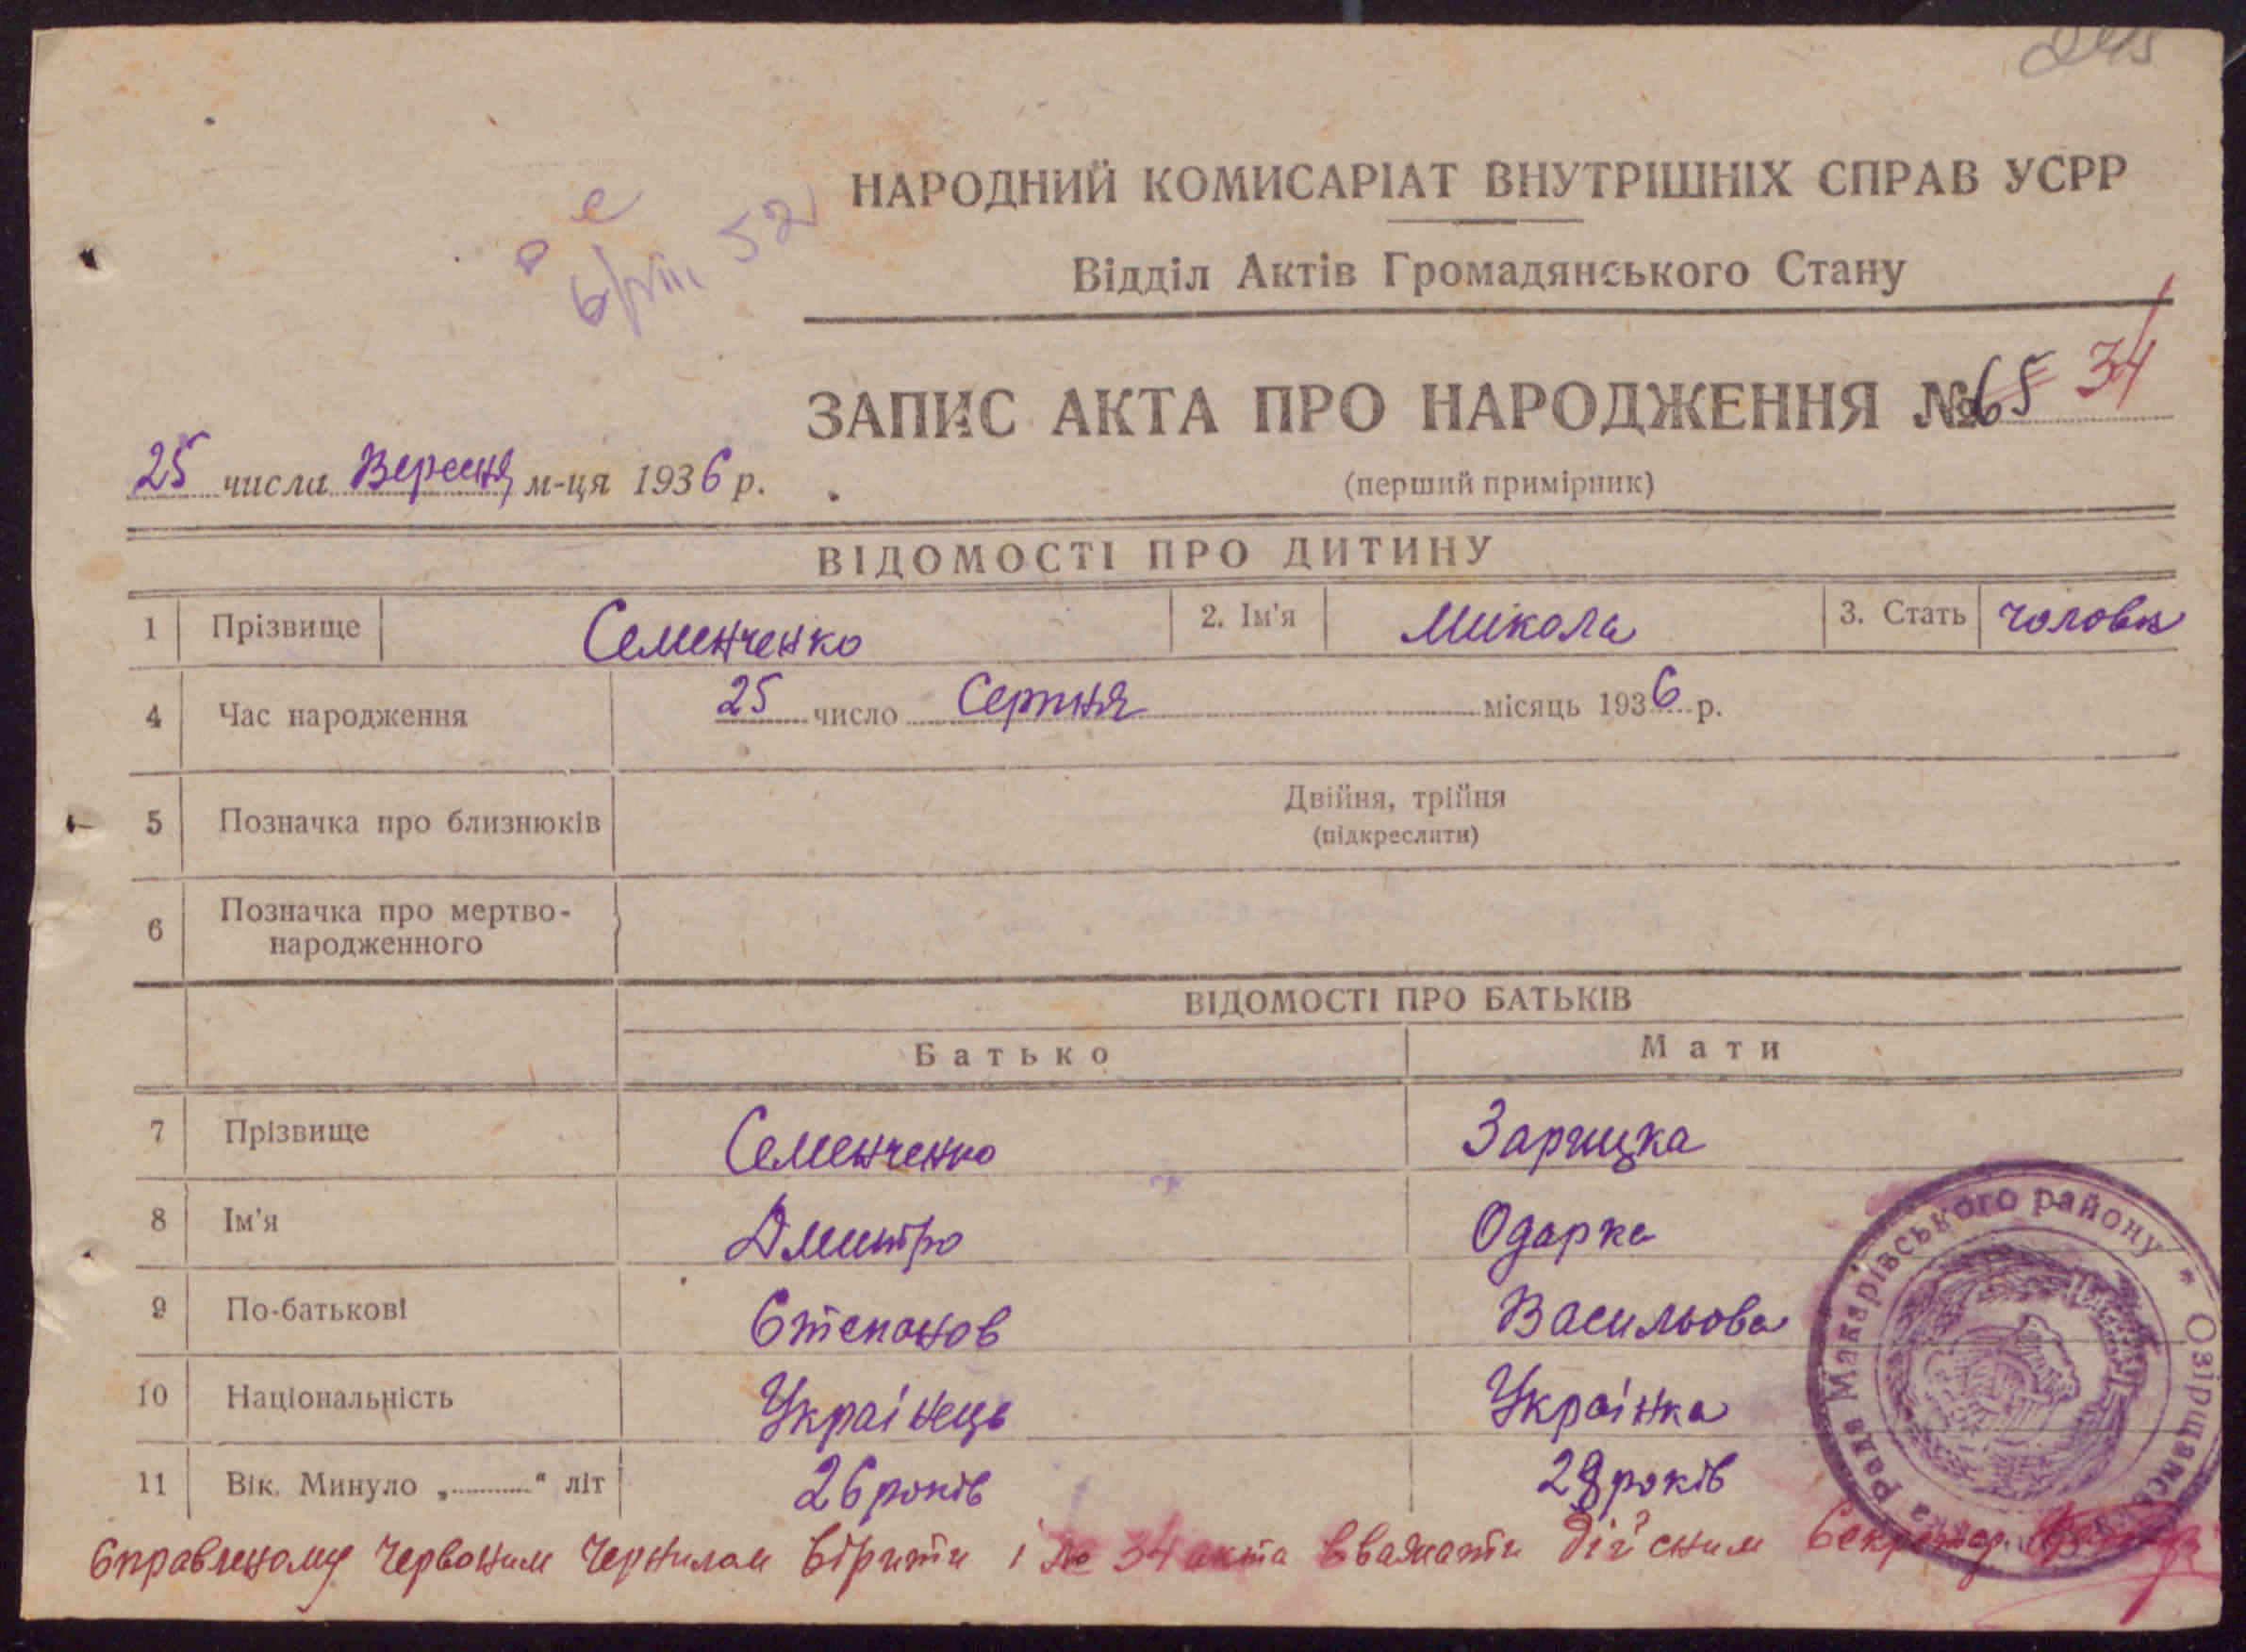 НАРОДНИЙ КОМИСАРІАТ ВНУТРІШНІХ СПРАВ УСРР
6/VIII 52
Відділ Актів Громадянського Стану
ЗАПИС АКТА ПРО НАРОДЖЕННЯ № 65 34
25 числа Вересня м-ця 1936 р.
(перший примірник)
ВІДОМОСТІ ПРО ДИТИНУ
1 Прізвище Семенченко 2. Ім'я Микола 3. Стать чоловк
4 Час народження 25 число Серпня місяць 1936 р.
5 Позначка про близнюків Двійня, трійня
(підкреслити)
6 Позначка про мертво-
народженного
ВІДОМОСТІ ПРО БАТЬКІВ
Батько Мати
7 Прізвище Семенченко Зарицка
8 Ім'я Дмитро Одарка
9 По-батькові Степанов Васильова
10 Національність Українець Українка
11 Вік. Минуло „ “ літ 26 років 28 років
Справленому червоним чернилам вірити і № 34 акта вважати дійсним Секретар.
Озірщанська Рада Макарівського району *